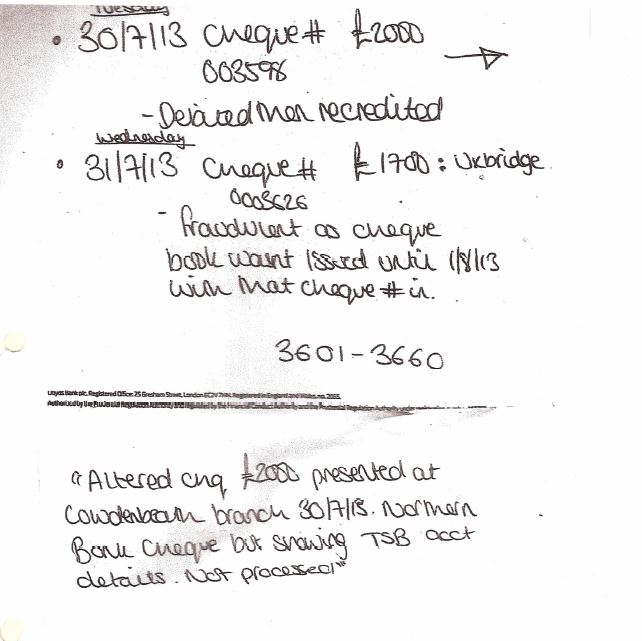 Tuesday
• 30/7/13 Cheque # £2000 →
003598
- Debited then recredited
Wednesday
• 31/7/13 Cheque # £1700 : Uxbridge
0003626
- fraudulent as cheque
book wasnt issued until 1/8/13
with that cheque # in.
3601 - 3660
Lloyds Bank plc. Registered Office: 25 Gresham Street, London EC2V 7HN. Registered in England and Wales, no. 2065.
Authorised by the Prudential Regulation Authority and regulated by the Financial Conduct Authority and the Prudential Regulation Authority under
"Altered chq £2000 presented at
Cowdenbeath branch 30/7/13. Northern
Bank Cheque but showing TSB acct
details. Not processed"